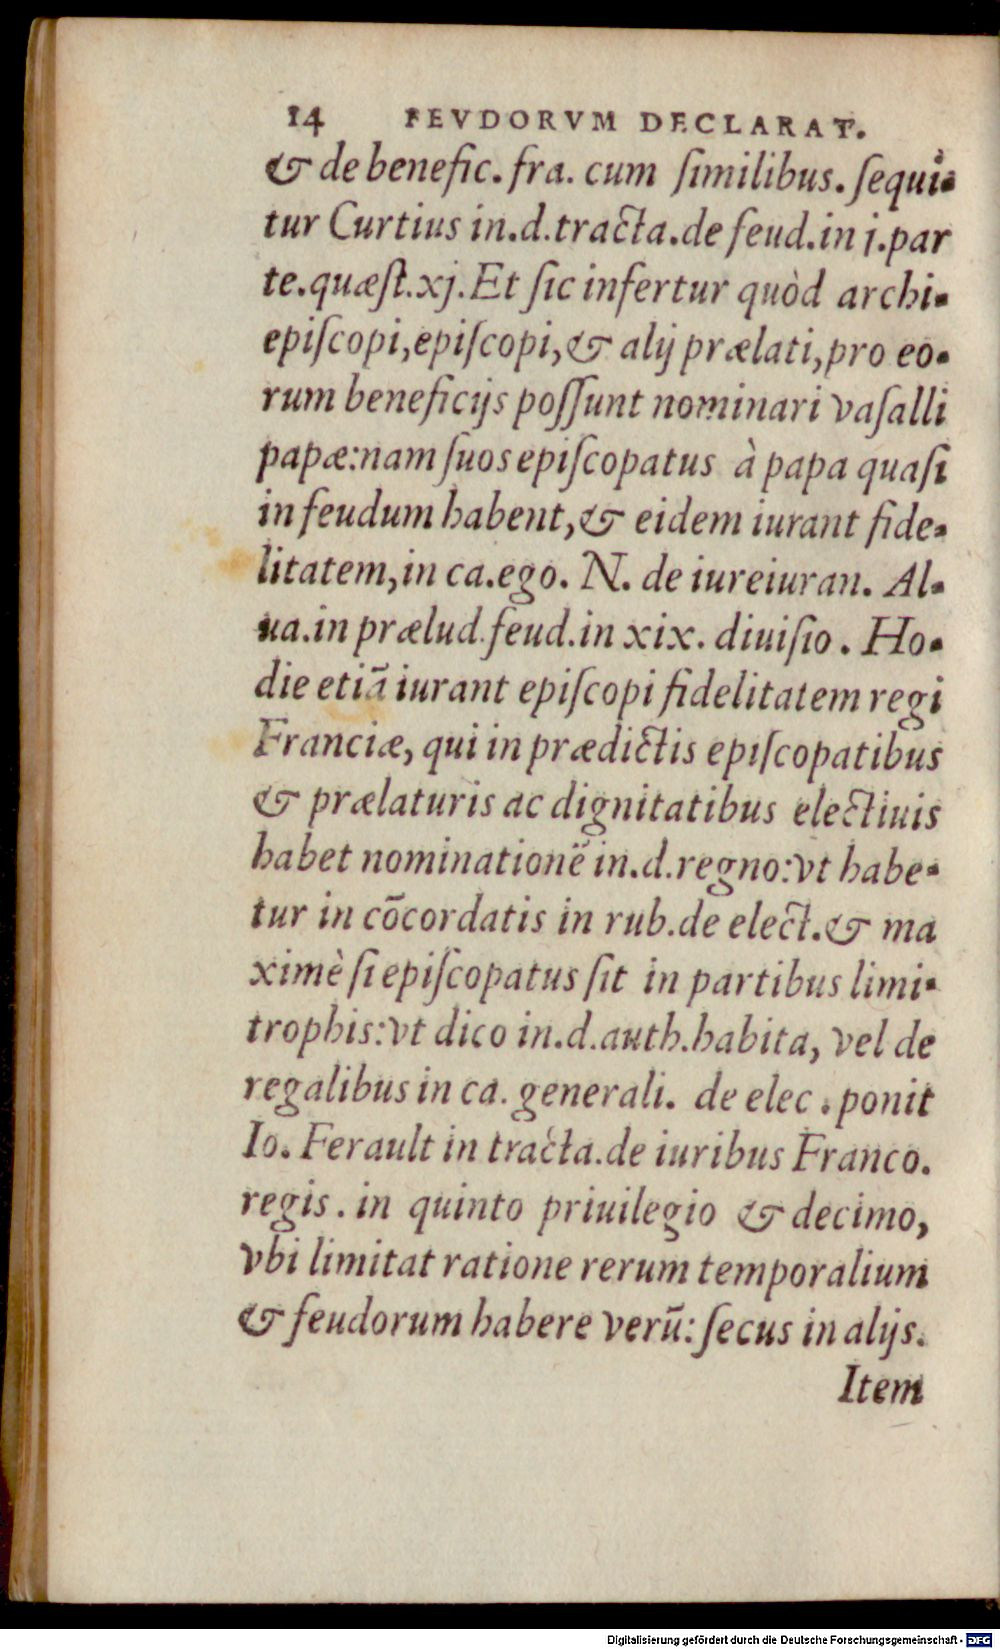 14 FEVDORVM DECLARAT.
& de benefic. fra. cum ſimilibus. ſequi-
tur Curtius in.d.tracta.de feud.in j.par
te.quæſt.xj.Et ſic infertur quòd archi-
epiſcopi,epiſcopi,& alij prælati,pro eo-
rum beneficijs poſſunt nominari vaſalli
papæ:nam ſuos epiſcopatus à papa quaſi
in feudum habent,& eidem iurant fide-
litatem,in ca.ego. N. de iureiuran. Al-
ua.in prælud.feud.in xix. diuiſio. Ho-
die etiã iurant epiſcopi fidelitatem regi
Franciæ, qui in prædictis epiſcopatibus
& prælaturis ac dignitatibus electiuis
habet nominationẽ in.d.regno:vt habe-
tur in cõcordatis in rub.de elect.& ma
ximè ſi epiſcopatus ſit in partibus limi-
trophis:vt dico in.d.auth.habita, vel de
regalibus in ca. generali. de elec. ponit
Io. Ferault in tracta.de iuribus Franco.
regis. in quinto priuilegio & decimo,
vbi limitat ratione rerum temporalium
& feudorum habere verũ: ſecus in alijs.
Item
Digitalisierung gefördert durch die Deutsche Forschungsgemeinschaft - DFG